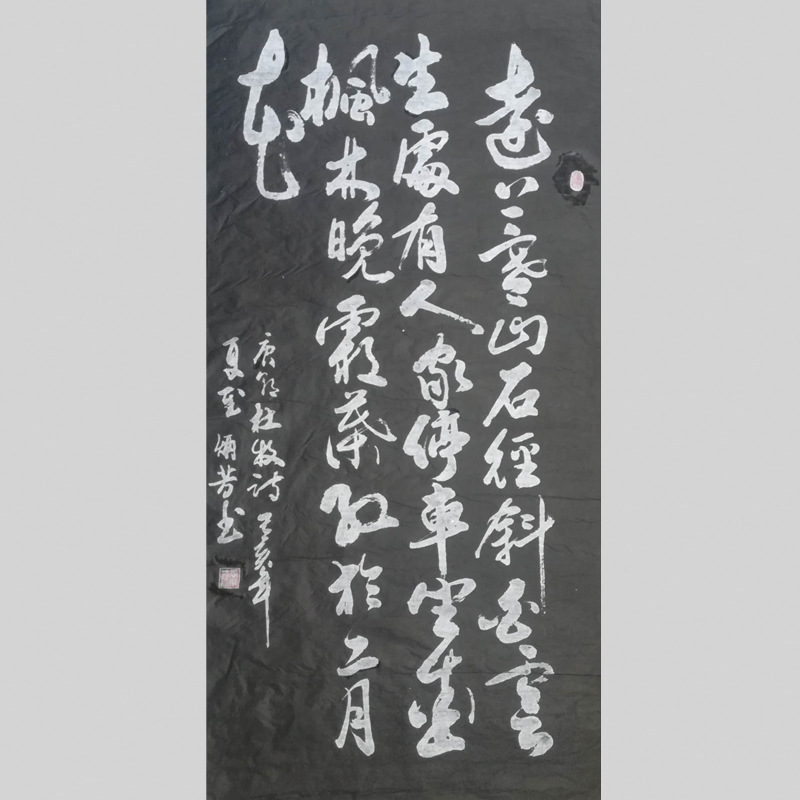 遠上寒山石徑斜白雲
生處有人家停車坐愛
楓林晚霜葉紅於二月
花
杜牧詩 年
夏至 書